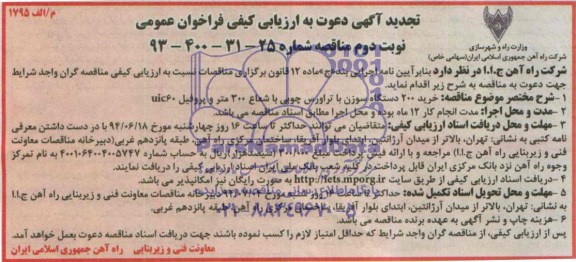 م/الف ۱۷۹۵
تجدید آگهی دعوت به ارزیابی کیفی فراخوان عمومی
نوبت دوم مناقصه شماره ۲۵-۳۱-۴۰۰-۹۳
وزارت راه و شهرسازی
شرکت راه آهن جمهوری اسلامی ایران (سهامی خاص)
شرکت راه آهن ج.ا.ا در نظر دارد بنابر آیین نامه اجرایی بند ج ماده ۱۲ قانون برگزاری مناقصات نسبت به ارزیابی کیفی مناقصه گران واجد شرایط
جهت دعوت به مناقصه به شرح زیر اقدام نماید.
۱- شرح مختصر موضوع مناقصه: خرید ۲۰۰ دستگاه سوزن با تراورس چوبی با شعاع ۳۰۰ متر و پروفیل uic60
۲- مدت و محل اجرا: مدت انجام کار ۱۲ ماه بوده و محل اجرا مطابق اسناد مناقصه می باشد.
۳- مهلت و محل دریافت اسناد ارزیابی کیفی: متقاضیان می توانند حداکثر تا ساعت ۱۶ روز چهارشنبه مورخ ۹۴/۰۶/۱۸ با در دست داشتن معرفی
نامه کتبی به نشانی: تهران، بالاتر از میدان آرژانتین، ابتدای بلوار آفریقا، ساختمان مرکزی راه آهن، طبقه پانزدهم غربی (دبیرخانه مناقصات معاونت
فنی و زیربنایی راه آهن ج.ا.ا) مراجعه و با ارائه فیش پرداخت مبلغ ریال به حساب شماره ۴۰۰۱۰۶۴۰۰۴۰۰۵۷۴۷ به نام تمرکز
وجوه راه آهن نزد بانک مرکزی ایران قابل پرداخت در کلیه شعب بانک ملی ایران اسناد ارزیابی کیفی را دریافت نمایند.
۴- دریافت اسناد ارزیابی کیفی از طریق سایت http://iets.mporg.ir به صورت رایگان نیز امکانپذیر می باشد.
۵- مهلت و محل تحویل اسناد تکمیل شده: حداکثر تا دبیرخانه مناقصات معاونت فنی و زیربنایی راه آهن ج.ا.ا
به نشانی: تهران، بالاتر از میدان آرژانتین، ابتدای بلوار آفریقا، ساختمان مرکزی راه آهن، طبقه پانزدهم غربی.
۶- هزینه چاپ و نشر آگهی به عهده برنده مناقصه می باشد.
پس از ارزیابی کیفی، از مناقصه گران واجد شرایط که حداقل امتیاز لازم را کسب نموده باشند جهت دریافت اسناد مناقصه دعوت بعمل خواهد آمد.
معاونت فنی و زیربنایی راه آهن جمهوری اسلامی ایران